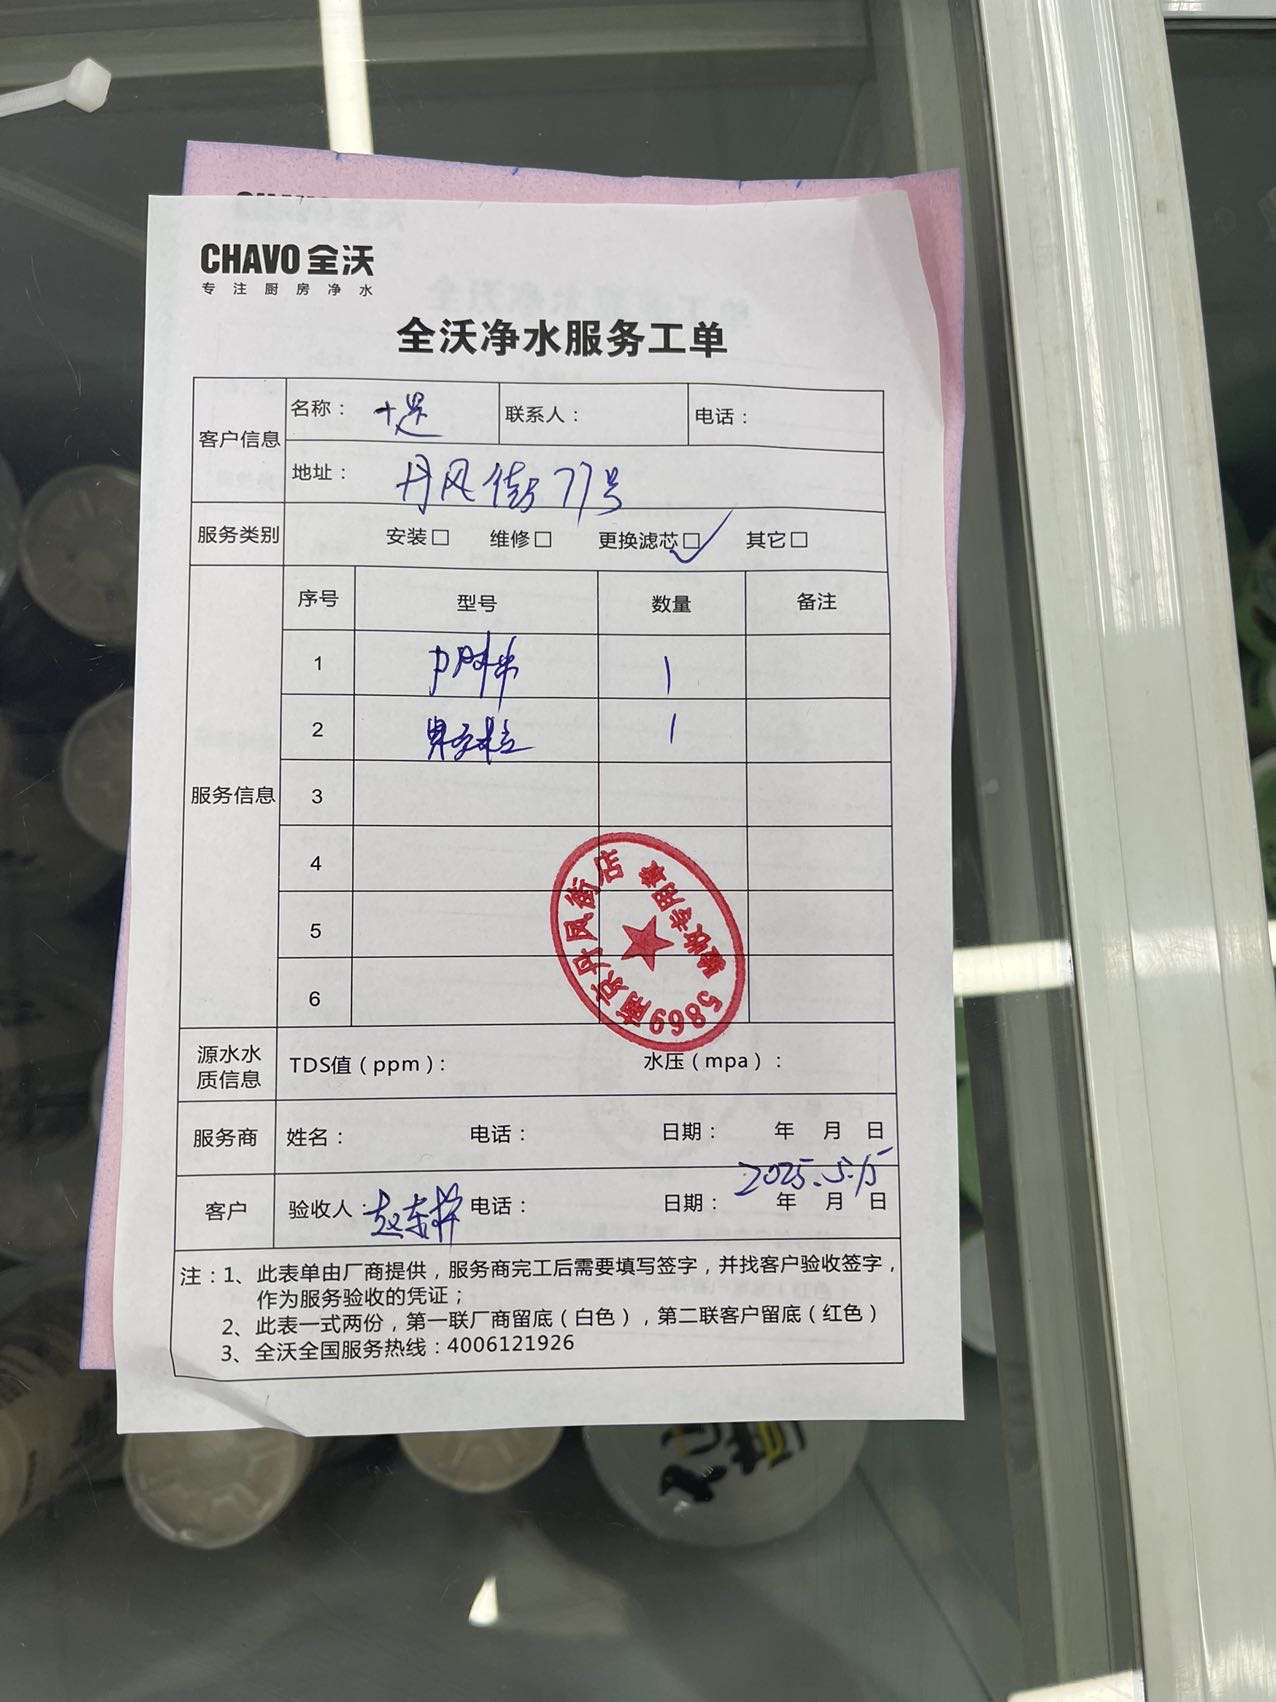 CHAVO 全沃
专注厨房净水
全沃净水服务工单
客户信息
名称：十足
联系人：
电话：
地址：丹凤街77号
服务类别
安装□ 维修□ 更换滤芯□✓ 其它□
服务信息
序号 型号 数量 备注
1 1
2 1
3
4
5
6
5869南京丹凤街店
验收专用章
源水水质信息
TDS值（ppm）：
水压（mpa）：
服务商
姓名：
电话：
日期： 年 月 日
客户
验收人：
电话：
日期： 年 月 日
2025.5.15
注：1、此表单由厂商提供，服务商完工后需要填写签字，并找客户验收签字，
作为服务验收的凭证；
2、此表一式两份，第一联厂商留底（白色），第二联客户留底（红色）
3、全沃全国服务热线：4006121926